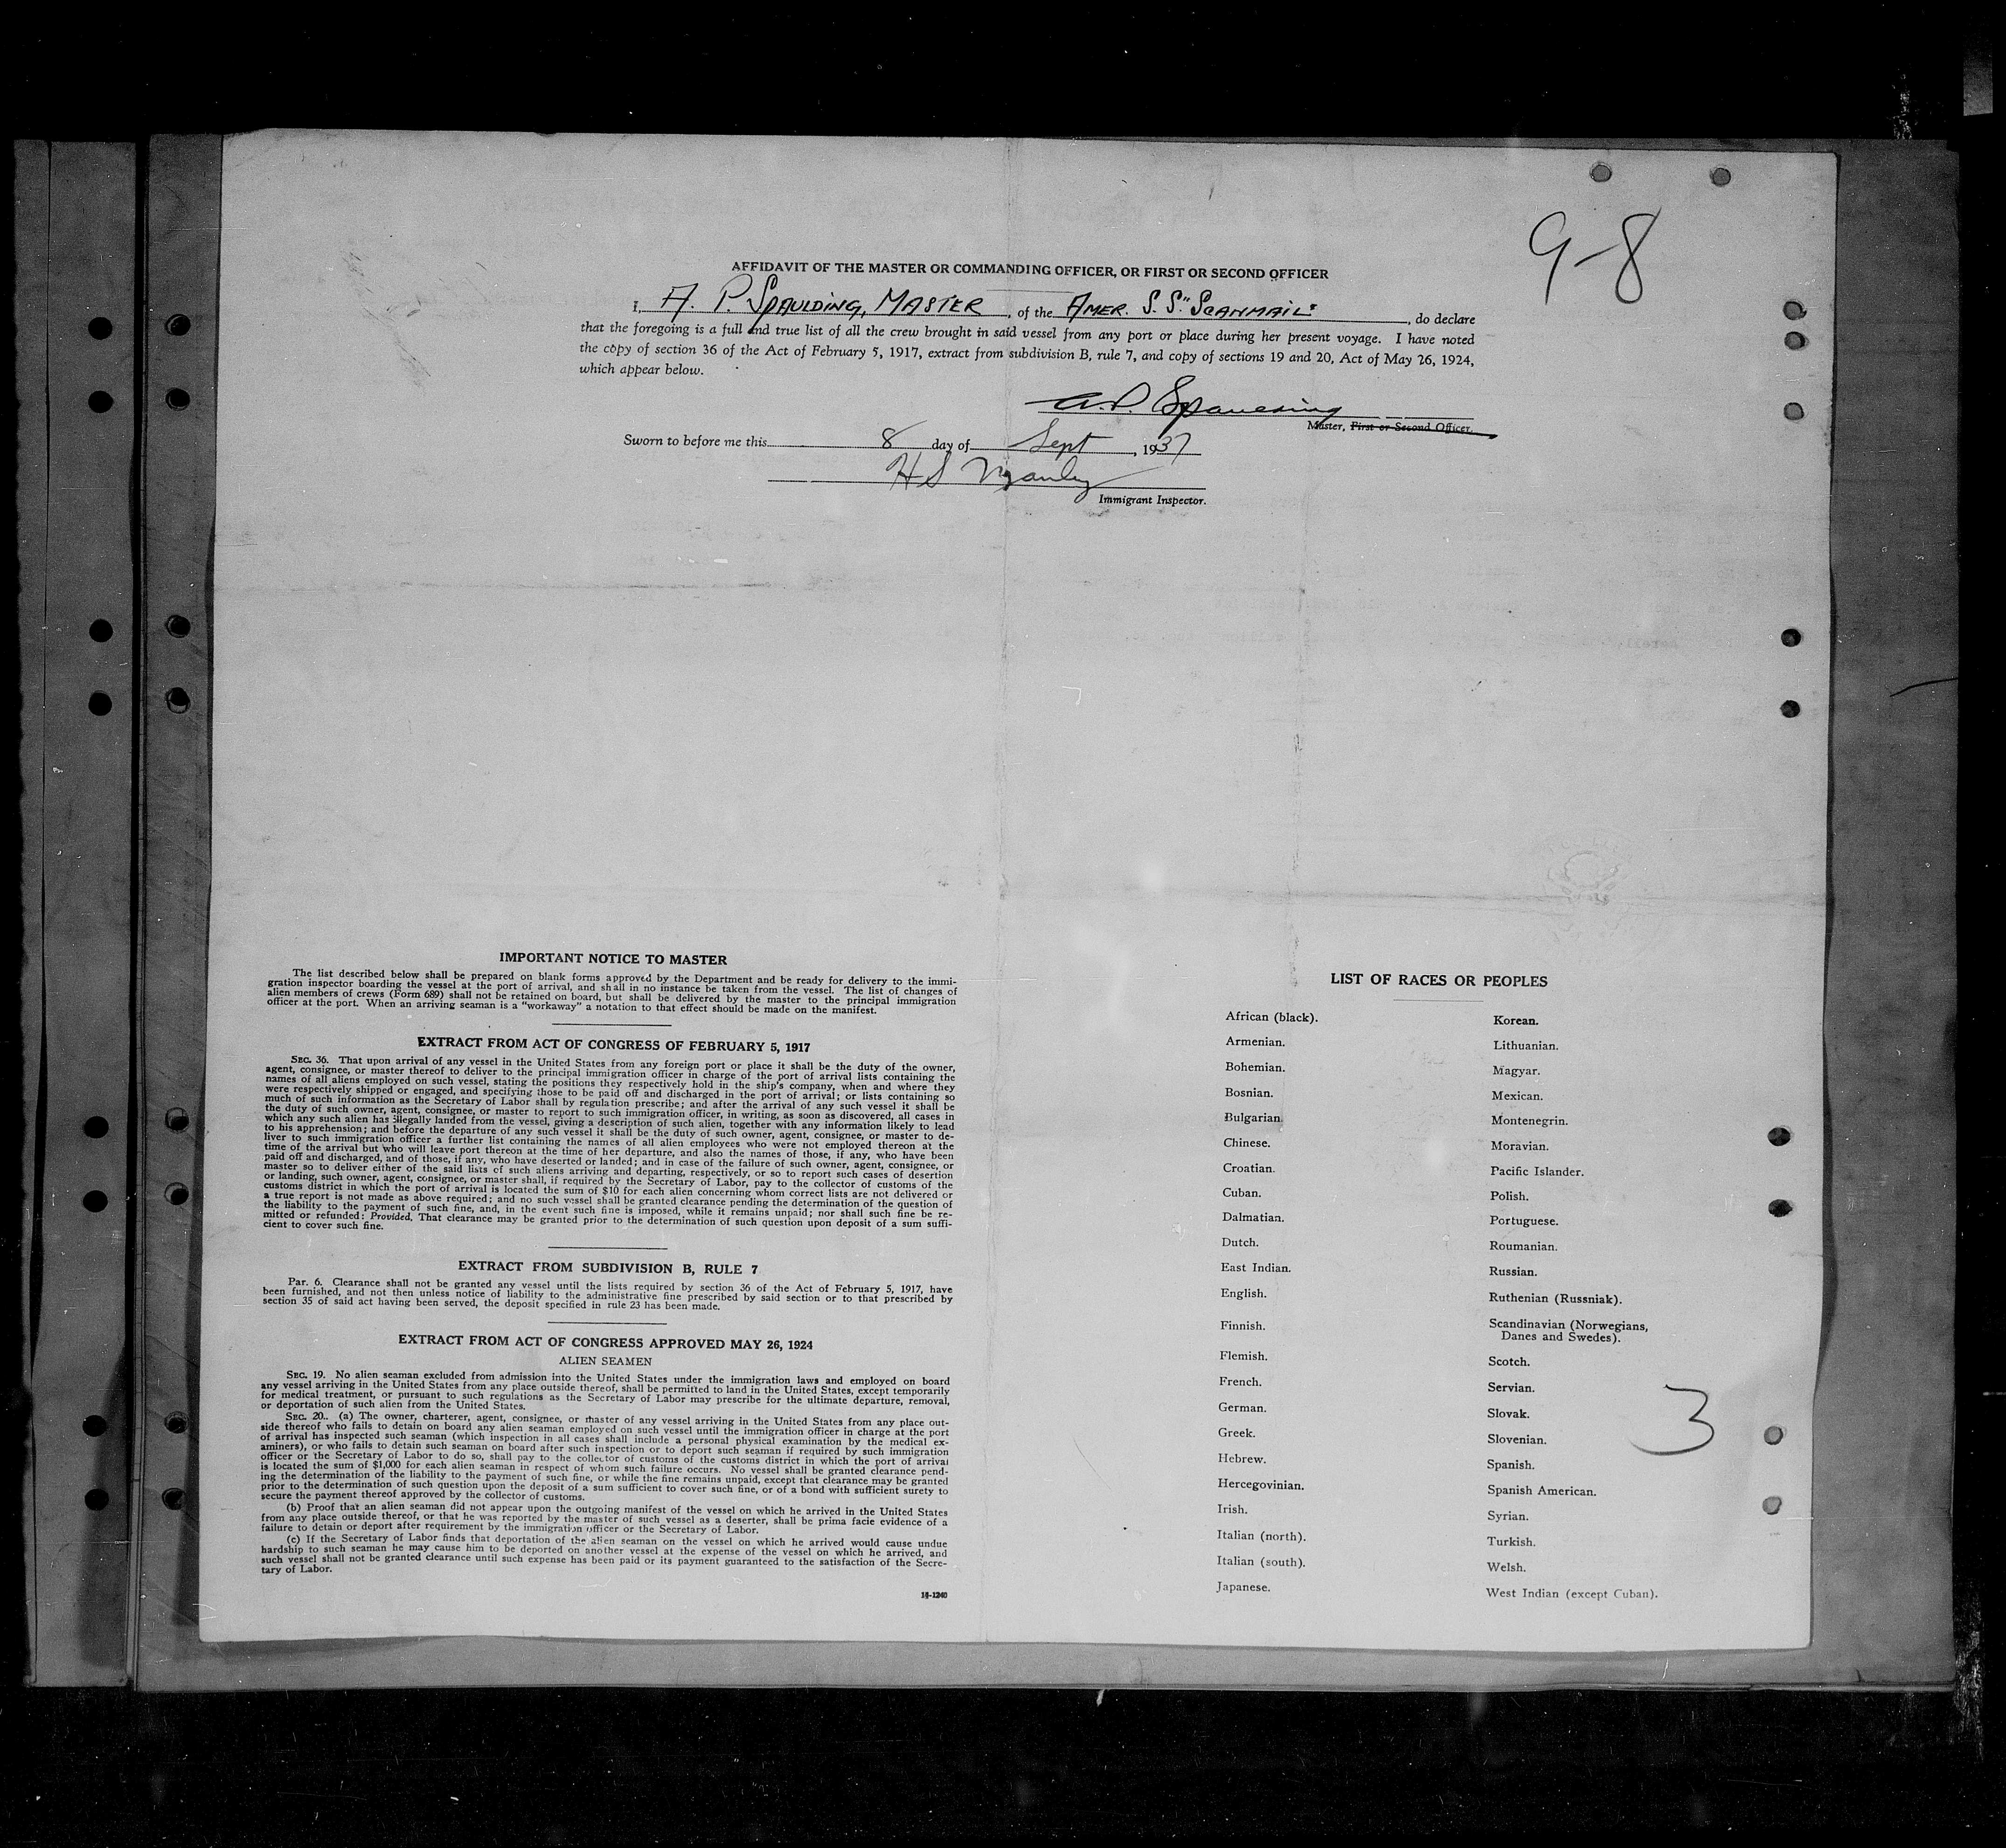 9-8
AFFIDAVIT OF THE MASTER OR COMMANDING OFFICER, OR FIRST OR SECOND OFFICER
I, A. P. SPAULDING, MASTER, of the AMER. S.S. "SCANMAIL", do declare
that the foregoing is a full and true list of all the crew brought in said vessel from any port or place during her present voyage. I have noted
the copy of section 36 of the Act of February 5, 1917, extract from subdivision B, rule 7, and copy of sections 19 and 20, Act of May 26, 1924,
which appear below.
A.P. Spaulding
Master, First or Second Officer.
Sworn to before me this 8 day of Sept, 1937
H S Manley
Immigrant Inspector.
IMPORTANT NOTICE TO MASTER
The list described below shall be prepared on blank forms approved by the Department and be ready for delivery to the immi-
gration inspector boarding the vessel at the port of arrival, and shall in no instance be taken from the vessel. The list of changes of
alien members of crews (Form 689) shall not be retained on board, but shall be delivered by the master to the principal immigration
officer at the port. When an arriving seaman is a "workaway" a notation to that effect should be made on the manifest.
EXTRACT FROM ACT OF CONGRESS OF FEBRUARY 5, 1917
SEC. 36. That upon arrival of any vessel in the United States from any foreign port or place it shall be the duty of the owner,
agent, consignee, or master thereof to deliver to the principal immigration officer in charge of the port of arrival lists containing the
names of all aliens employed on such vessel, stating the positions they respectively hold in the ship's company, when and where they
were respectively shipped or engaged, and specifying those to be paid off and discharged in the port of arrival; or lists containing so
much of such information as the Secretary of Labor shall by regulation prescribe; and after the arrival of any such vessel it shall be
the duty of such owner, agent, consignee, or master to report to such immigration officer, in writing, as soon as discovered, all cases in
which any such alien has illegally landed from the vessel, giving a description of such alien, together with any information likely to lead
to his apprehension; and before the departure of any such vessel it shall be the duty of such owner, agent, consignee, or master to de-
liver to such immigration officer a further list containing the names of all alien employees who were not employed thereon at the
time of the arrival but who will leave port thereon at the time of her departure, and also the names of those, if any, who have been
paid off and discharged, and of those, if any, who have deserted or landed; and in case of the failure of such owner, agent, consignee, or
master so to deliver either of the said lists of such aliens arriving and departing, respectively, or so to report such cases of desertion
or landing, such owner, agent, consignee, or master shall, if required by the Secretary of Labor, pay to the collector of customs of the
customs district in which the port of arrival is located the sum of $10 for each alien concerning whom correct lists are not delivered or
a true report is not made as above required; and no such vessel shall be granted clearance pending the determination of the question of
the liability to the payment of such fine, and, in the event such fine is imposed, while it remains unpaid; nor shall such fine be re-
mitted or refunded: Provided, That clearance may be granted prior to the determination of such question upon deposit of a sum suffi-
cient to cover such fine.
EXTRACT FROM SUBDIVISION B, RULE 7
Par. 6. Clearance shall not be granted any vessel until the lists required by section 36 of the Act of February 5, 1917, have
been furnished, and not then unless notice of liability to the administrative fine prescribed by said section or to that prescribed by
section 35 of said act having been served, the deposit specified in rule 23 has been made.
EXTRACT FROM ACT OF CONGRESS APPROVED MAY 26, 1924
ALIEN SEAMEN
SEC. 19. No alien seaman excluded from admission into the United States under the immigration laws and employed on board
any vessel arriving in the United States from any place outside thereof, shall be permitted to land in the United States, except temporarily
for medical treatment, or pursuant to such regulations as the Secretary of Labor may prescribe for the ultimate departure, removal,
or deportation of such alien from the United States.
SEC. 20. (a) The owner, charterer, agent, consignee, or master of any vessel arriving in the United States from any place out-
side thereof who fails to detain on board any alien seaman employed on such vessel until the immigration officer in charge at the port
of arrival has inspected such seaman (which inspection in all cases shall include a personal physical examination by the medical ex-
aminers), or who fails to detain such seaman on board after such inspection or to deport such seaman if required by such immigration
officer or the Secretary of Labor to do so, shall pay to the collector of customs of the customs district in which the port of arrival
is located the sum of $1,000 for each alien seaman in respect of whom such failure occurs. No vessel shall be granted clearance pend-
ing the determination of the liability to the payment of such fine, or while the fine remains unpaid, except that clearance may be granted
prior to the determination of such question upon the deposit of a sum sufficient to cover such fine, or of a bond with sufficient surety to
secure the payment thereof approved by the collector of customs.
(b) Proof that an alien seaman did not appear upon the outgoing manifest of the vessel on which he arrived in the United States
from any place outside thereof, or that he was reported by the master of such vessel as a deserter, shall be prima facie evidence of a
failure to detain or deport after requirement by the immigration officer or the Secretary of Labor.
(c) If the Secretary of Labor finds that deportation of the alien seaman on the vessel on which he arrived would cause undue
hardship to such seaman he may cause him to be deported on another vessel at the expense of the vessel on which he arrived, and
such vessel shall not be granted clearance until such expense has been paid or its payment guaranteed to the satisfaction of the Secre-
tary of Labor.
14-1240
LIST OF RACES OR PEOPLES
African (black).
Armenian.
Bohemian.
Bosnian.
Bulgarian.
Chinese.
Croatian.
Cuban.
Dalmatian.
Dutch.
East Indian.
English.
Finnish.
Flemish.
French.
German.
Greek.
Hebrew.
Hercegovinian.
Irish.
Italian (north).
Italian (south).
Japanese.
Korean.
Lithuanian.
Magyar.
Mexican.
Montenegrin.
Moravian.
Pacific Islander.
Polish.
Portuguese.
Roumanian.
Russian.
Ruthenian (Russniak).
Scandinavian (Norwegians,
Danes and Swedes).
Scotch.
Servian.
Slovak.
Slovenian.
Spanish.
Spanish American.
Syrian.
Turkish.
Welsh.
West Indian (except Cuban).
3